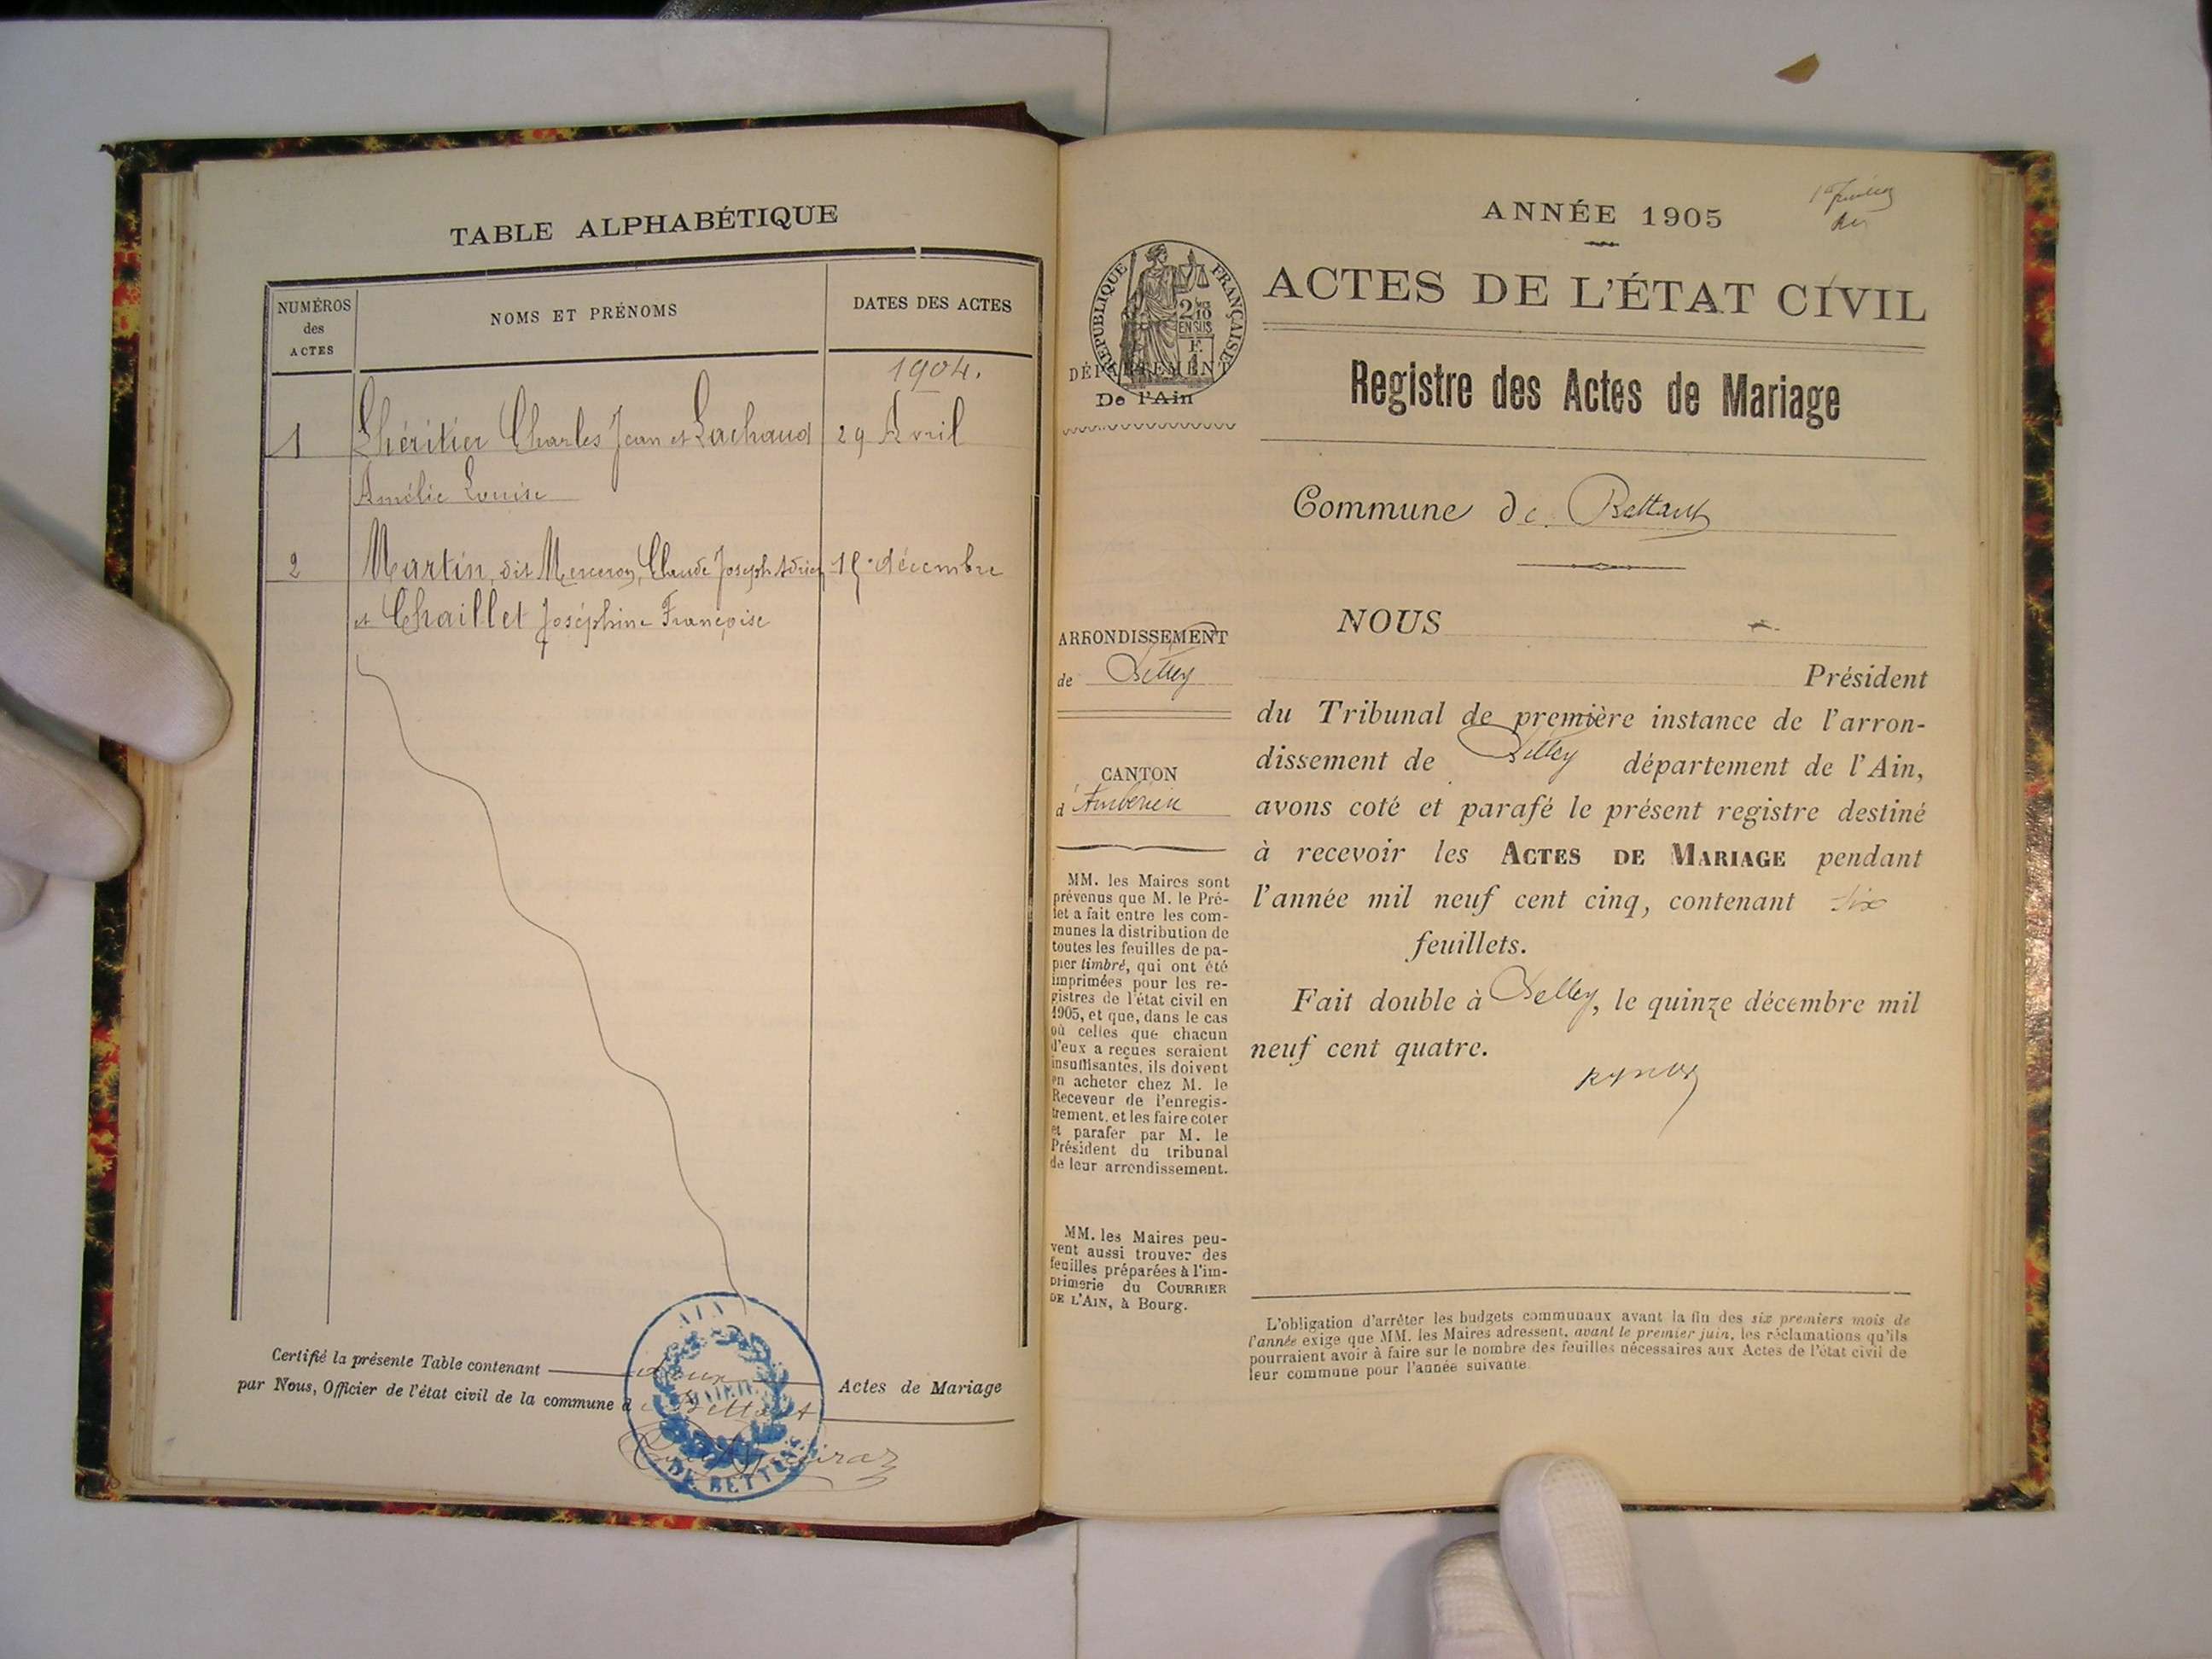 TABLE ALPHABÉTIQUE
NUMÉROS
des
ACTES
NOMS ET PRÉNOMS
DATES DES ACTES
1904.
1 Lhéritier Charles Jean et Lachaud 29 Avril
Amélie Louise
2 Martin, dit Merceron, Claude Joseph Adrien 15 décembre
et Chaillet Joséphine Françoise
Certifié la présente Table contenant deux Actes de Mariage
par Nous, Officier de l'état civil de la commune de Bettant
AIN
MAIRIE
DE BETTANT
ANNÉE 1905
1er feuillet
RÉPUBLIQUE FRANÇAISE
2/10
EN SUS
DÉPARTEMENT
De l'Ain
ACTES DE L'ÉTAT CIVIL
Registre des Actes de Mariage
Commune de Bettant
ARRONDISSEMENT
de Belley
CANTON
d'Ambérieu
MM. les Maires sont
prévenus que M. le Pré-
fet a fait entre les com-
munes la distribution de
toutes les feuilles de pa-
pier timbré, qui ont été
imprimées pour les re-
gistres de l'état civil en
1905, et que, dans le cas
où celles que chacun
d'eux a reçues seraient
insuffisantes, ils doivent
en acheter chez M. le
Receveur de l'enregis-
trement, et les faire coter
et parafer par M. le
Président du tribunal
de leur arrondissement.
MM. les Maires peu-
vent aussi trouver des
feuilles préparées à l'im-
primerie du COURRIER
DE L'AIN, à Bourg.
NOUS
Président
du Tribunal de première instance de l'arron-
dissement de Belley département de l'Ain,
avons coté et parafé le présent registre destiné
à recevoir les ACTES DE MARIAGE pendant
l'année mil neuf cent cinq, contenant six
feuillets.
Fait double à Belley, le quinze décembre mil
neuf cent quatre.
L'obligation d'arrêter les budgets communaux avant la fin des six premiers mois de
l'année exige que MM. les Maires adressent, avant le premier juin, les réclamations qu'ils
pourraient avoir à faire sur le nombre des feuilles nécessaires aux Actes de l'état civil de
leur commune pour l'année suivante